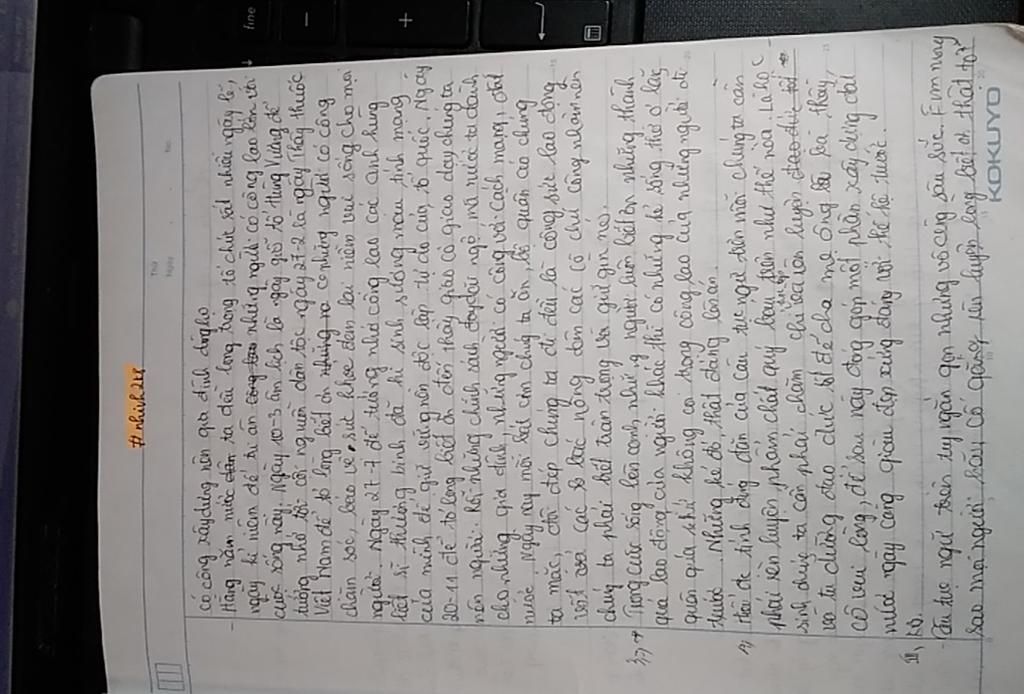 #nhinh2k8
Thứ
Ngày
No.
có công xây dựng nên gia đình dòng họ
- Hằng năm nước ta đều long trọng tổ chức rất nhiều ngày lễ,
ngày kỉ niệm để tri ân những người có công lao lớn với
cuộc sống này. Ngày 10-3 âm lịch là ngày giỗ tổ Hùng Vương để
tưởng nhớ tới cội nguồn dân tộc, ngày 27-2 là ngày Thầy thuốc
Việt Nam để tỏ lòng biết ơn những người có công
chăm sóc, bảo vệ sức khỏe đem lại niềm vui sống cho mọi
người. Ngày 27-7 để tưởng nhớ công lao các anh hùng
liệt sĩ thương binh đã hi sinh xương máu tính mạng
của mình để giữ vững nền độc lập tự do của tổ quốc. Ngày
20-11 để tỏ lòng biết ơn đến thầy giáo cô giáo dạy chúng ta
nên người. Rồi những chính sách đãi ngộ mà nước ta dành
cho những gia đình, những người có công với cách mạng, đất
nước. Ngày nay mỗi bát cơm chúng ta ăn, bộ quần áo chúng
ta mặc, đôi dép chúng ta đi đều là công sức lao động
vất vả các cô bác nông dân các cô chú công nhân nên
chúng ta phải biết trân trọng và giữ gìn nó.
3, → Trong cuộc sống bên cạnh những người luôn biết ơn những thành
quả lao động của người khác thì có những kẻ sống thờ ơ lãng
quên quá khứ không coi trọng công lao của những người đi
trước. Những kẻ đó thật đáng lên án.
4, Thấy được tính đúng đắn của câu tục ngữ trên mỗi chúng ta cần
phải rèn luyện phẩm chất quý báu trên như thế nào. Là học
sinh chúng ta cần phải chăm chỉ học tập rèn luyện đạo đức tốt
và tu dưỡng đạo đức tốt để cha mẹ ông bà thầy,
cô vui lòng, để sau này đóng góp một phần xây dựng đất
nước ngày càng giàu đẹp xứng đáng với thế hệ trước.
III, KB.
- Câu tục ngữ trên tuy ngắn gọn nhưng vô cùng sâu sắc. Em mong
sao mọi người hãy cố gắng rèn luyện lòng biết ơn thật tốt
KOKUYO
fine